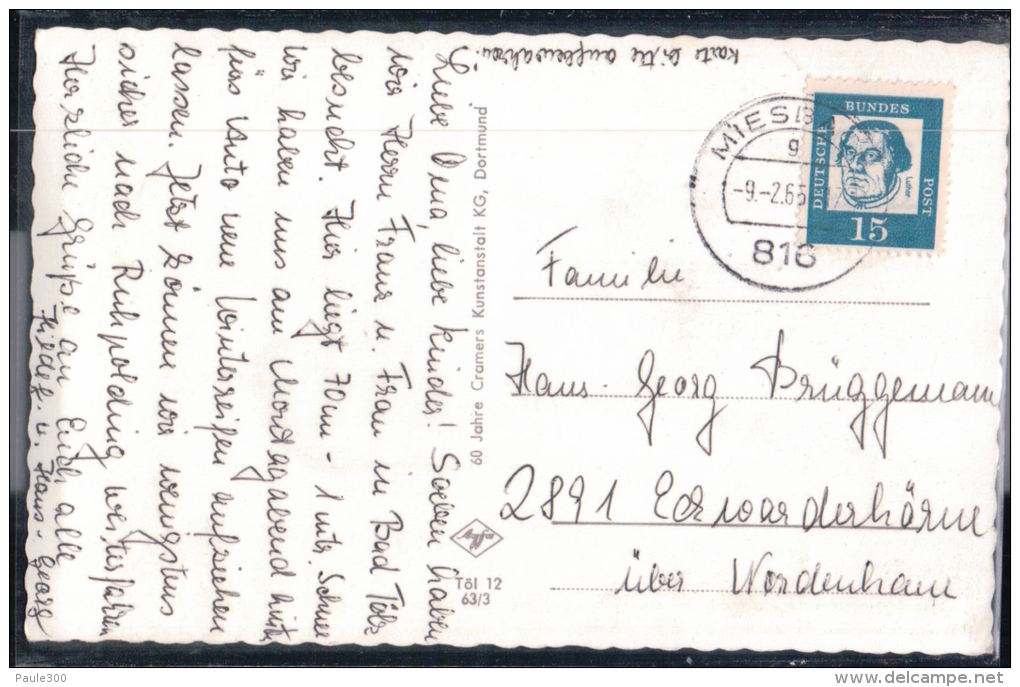 Karte bitte aufbewahren!
Liebe Oma, liebe Kinder! Soeben haben
wir Herrn Franz u. Frau in Bad Tölz
besucht. Hier liegt 70 cm - 1 mtr. Schnee
wir haben uns am Montagabend hinten
fürs Auto neue Winterreifen aufziehen
lassen. Jetzt können wir wenigstens
sicher nach Ruhpolding weiterfahren
Herzliche Grüße an Euch alle
u. Hans-Georg
60 Jahre Cramers Kunstanstalt KG, Dortmund
Töl 12
63/3
MIESB
g
-9.-2.65
816
DEUTSCHE BUNDESPOST
Luther
15
Familie
Hans-Georg Brüggemann
2891 Eckwarderhörne
über Nordenham
Paule300
© www.delcampe.net